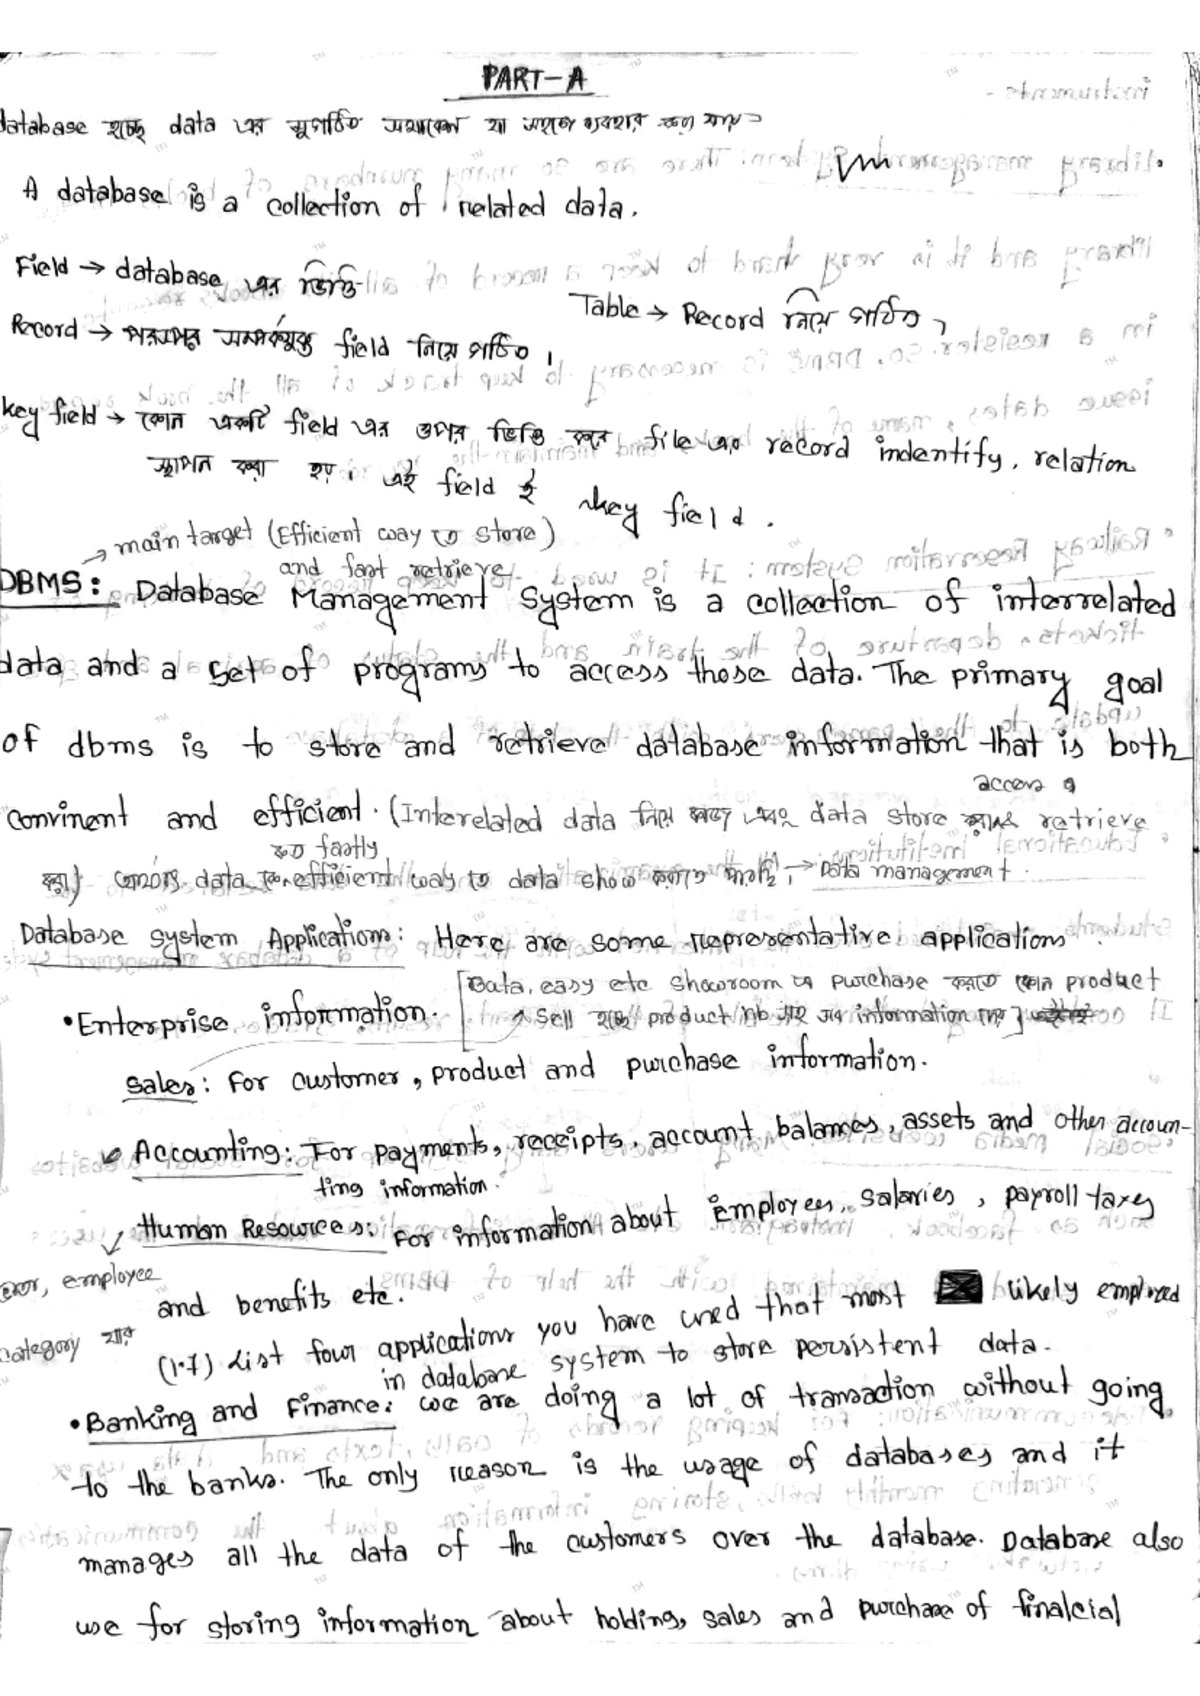 PART-A
database হচ্ছে data এর সুগঠিত সমাবেশ যা সহজে ব্যবহার করা যায়
A database is a collection of related data.
Field → database এর ভিত্তি
Table → Record নিয়ে গঠিত,
Record → পরস্পর সম্পর্কযুক্ত field নিয়ে গঠিত।
key field → কোন একটি field এর উপর ভিত্তি করে file এর record indentify, relation
স্থাপন করা হয়। এই field ই key field.
→ main target (Efficient way তে store)
and fast retrieve
DBMS: Database Management System is a collection of interrelated
data and a set of programs to access those data. The primary goal
of dbms is to store and retrieve database information that is both
access ও
convinent and efficient. (Interelated data নিয়ে করে এবং data store retrieve
fastly
করা) data efficient way তে data show করতে → Data management.
Database System Applications: Here are some representative applications
[Data, easy etc showroom এ purchase করতে কোন product
• Enterprise information.
sell হচ্ছে product information]
Sales: For customer, product and purchase information.
Accounting: For payments, receipts, account balances, assets and other accoun-
ting information.
Human Resources: For information about employees, salaries, payroll taxes
employee
and benefits etc.
category
(1.7) List four applications you have used that most likely employed
in database system to store persistent data.
• Banking and Finance: we are doing a lot of transaction without going
to the banks. The only reason is the usage of databases and it
manages all the data of the customers over the database. Database also
use for storing information about holding, sales and purchase of finalcial